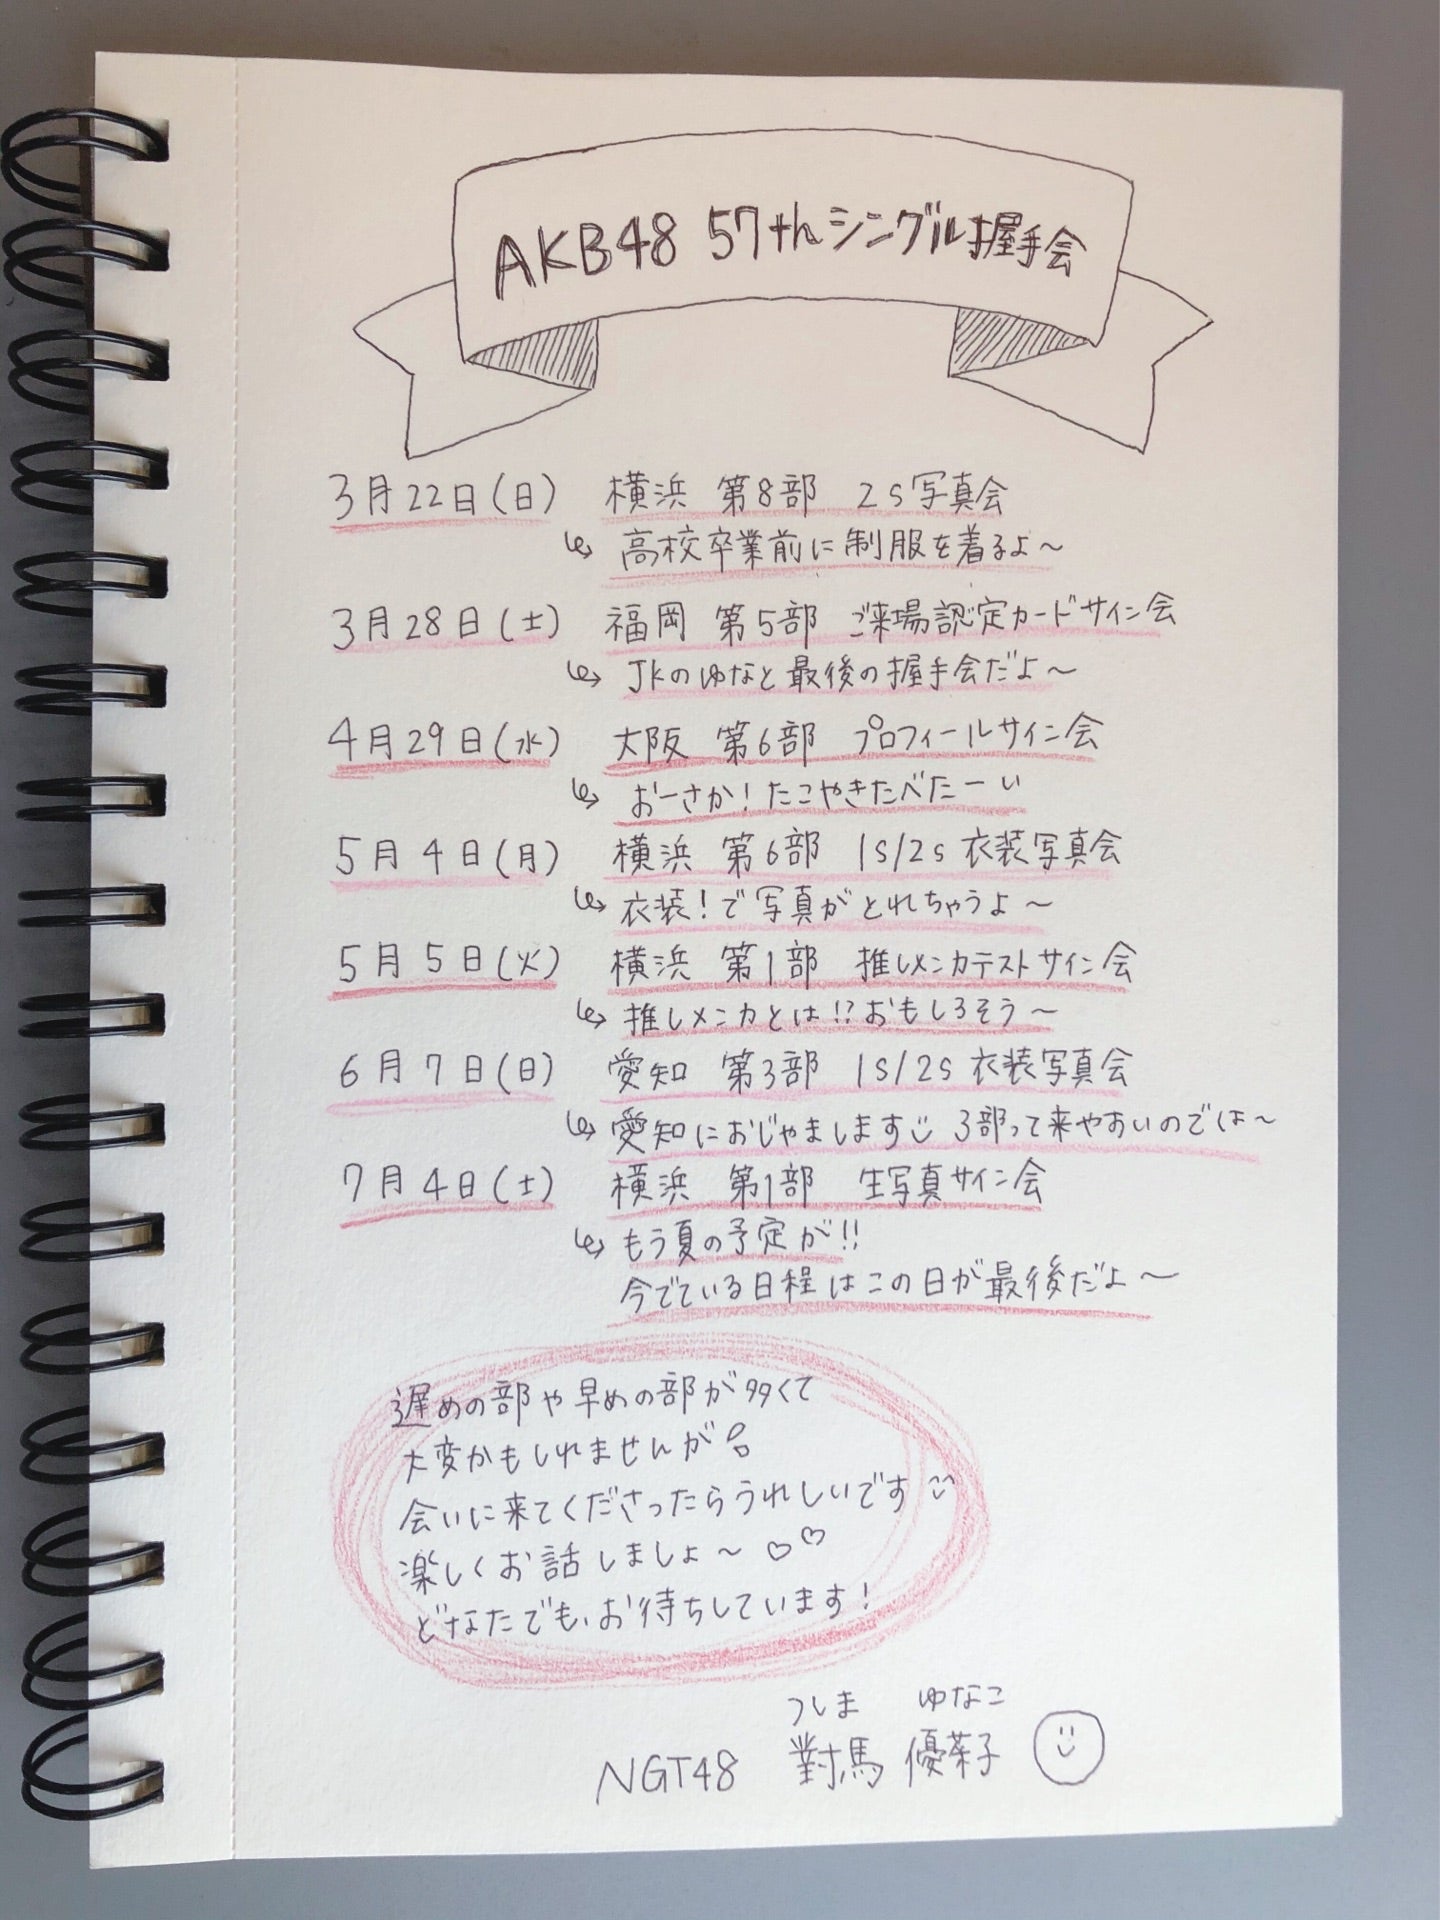 AKB48 57thシングル握手会
3月22日(日) 横浜 第8部 2S写真会
↳ 高校卒業前に制服を着るよ〜
3月28日(土) 福岡 第5部 ご来場認定カードサイン会
↳ JKのゆなと最後の握手会だよ〜
4月29日(水) 大阪 第6部 プロフィールサイン会
↳ おーさか!たこやきたべたーい
5月4日(月) 横浜 第6部 1S/2S 衣装写真会
↳ 衣装!で写真がとれちゃうよ〜
5月5日(火) 横浜 第1部 推しメンカテストサイン会
↳ 推しメンカとは!?おもしろそう〜
6月7日(日) 愛知 第3部 1S/2S 衣装写真会
↳ 愛知におじゃまします 3部って来やすいのでは〜
7月4日(土) 横浜 第1部 生写真サイン会
↳ もう夏の予定が!!
今でている日程はこの日が最後だよ〜
遅めの部や早めの部が多くて
大変かもしれませんが
会いに来てくださったらうれしいです
楽しくお話しましょ〜♡♡
どなたでも、お待ちしています!
つしま ゆなこ
NGT48 對馬 優菜子